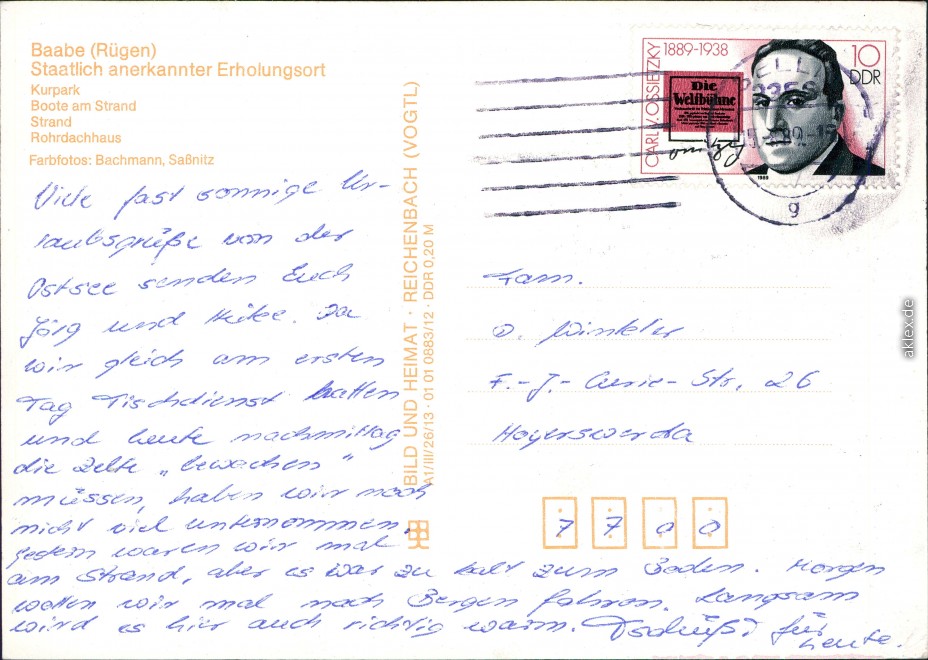 Baabe (Rügen)
Staatlich anerkannter Erholungsort
Kurpark
Boote am Strand
Strand
Rohrdachhaus
Farbfotos: Bachmann, Saßnitz
Viele fast sonnige Ur-
laubsgrüße von der
Ostsee senden Euch
Jörg und Heike. Da
wir gleich am ersten
Tag Tischdienst hatten
und heute nachmittag
die Zelte „bewachen"
müssen, haben wir noch
nicht viel unternommen.
Gestern waren wir mal
am Strand, aber es war zu kalt zum Baden. Morgen
wollen wir mal nach Bergen fahren. Langsam
wird es hier auch richtig warm. Tschüß! für
heute.
BILD UND HEIMAT · REICHENBACH (VOGTL)
A1/III/26/13 · 01 01 0883/12 · DDR 0,20 M
CARL V. OSSIETZKY 1889-1938
10
DDR
Die
Weltbühne
1989
g
Fam.
D. Winkler
F.-J.-Curie-Str. 26
Hoyerswerda
7 7 0 0
aklex.de